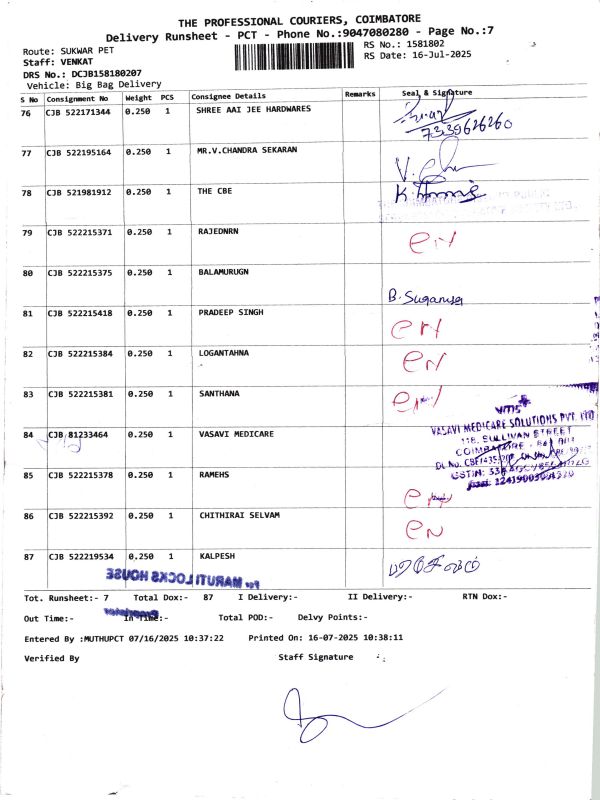 THE PROFESSIONAL COURIERS, COIMBATORE
Delivery Runsheet - PCT - Phone No.:9047080280 - Page No.:7
Route: SUKWAR PET
RS No.: 1581802
Staff: VENKAT
RS Date: 16-Jul-2025
DRS No.: DCJB158180207
Vehicle: Big Bag Delivery
S No Consignment No Weight PCS Consignee Details Remarks Seal & Signature
76 CJB 522171344 0.250 1 SHREE AAI JEE HARDWARES
7339626260
77 CJB 522195164 0.250 1 MR.V.CHANDRA SEKARAN
78 CJB 521981912 0.250 1 THE CBE
79 CJB 522215371 0.250 1 RAJEDNRN
80 CJB 522215375 0.250 1 BALAMURUGN
B. Suganya
81 CJB 522215418 0.250 1 PRADEEP SINGH
82 CJB 522215384 0.250 1 LOGANTAHNA
83 CJB 522215381 0.250 1 SANTHANA
84 CJB 81233464 0.250 1 VASAVI MEDICARE
VMS
VASAVI MEDICARE SOLUTIONS PVT. LTD
118, SULLIVAN STREET
COIMBATORE
85 CJB 522215378 0.250 1 RAMEHS
86 CJB 522215392 0.250 1 CHITHIRAI SELVAM
87 CJB 522219534 0.250 1 KALPESH
For MARUTI LOCKS HOUSE
Tot. Runsheet:- 7 Total Dox:- 87 I Delivery:- II Delivery:- RTN Dox:-
Out Time:- In Time:- Total POD:- Delvy Points:-
Entered By :MUTHUPCT 07/16/2025 10:37:22 Printed On: 16-07-2025 10:38:11
Verified By Staff Signature